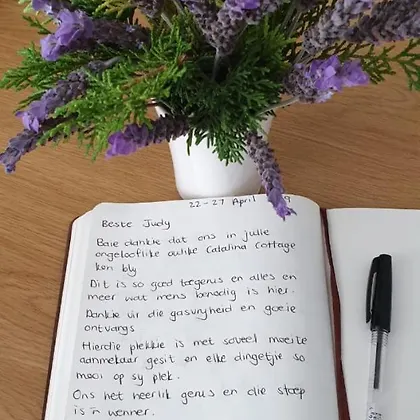 22-27 April 9
Beste Judy
Baie dankie dat ons in julle
ongelooflike oulike Catalina Cottage
kon bly
Dit is so goed toegerus en alles en
meer wat mens benodig is hier.
Dankie vir die gasvryheid en goeie
ontvangs
Hierdie plekkie is met soveel moeite
aanmekaar gesit en elke dingetjie so
mooi op sy plek.
Ons het heerlik gerus en die stoep
is 'n wenner.